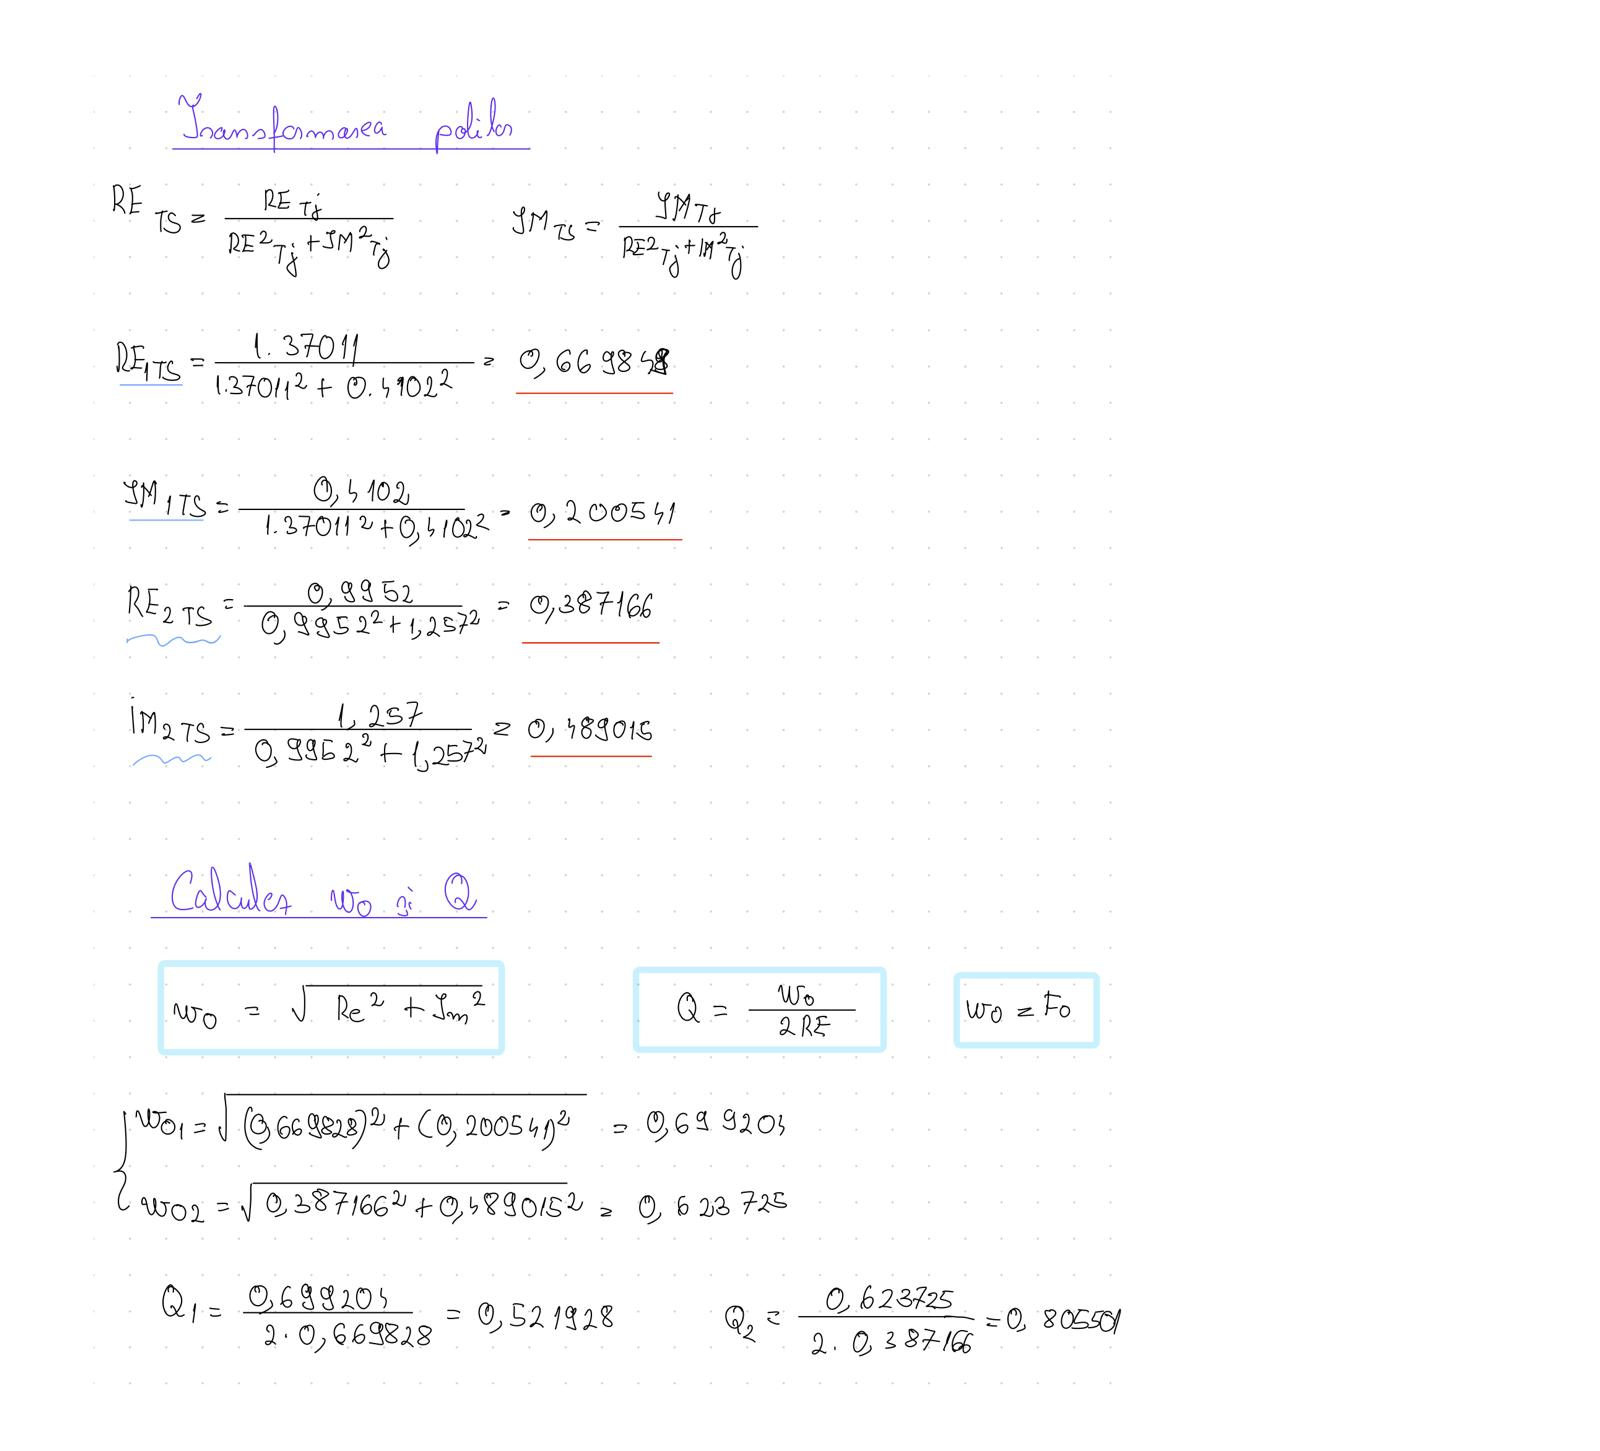 Transformarea polilor
RE TS = RE Tj / RE² Tj + IM² Tj    IM TS = IM Tj / RE² Tj + IM² Tj
RE1TS = 1.37011 / 1.37011² + 0.4102² = 0,669848
IM1TS = 0,4102 / 1.37011² + 0,4102² = 0,200541
RE2TS = 0,9952 / 0,9952² + 1,257² = 0,387166
iM2TS = 1,257 / 0,9952² + 1,257² = 0,489015
Calculez w0 și Q
w0 = √Re² + Im²    Q = w0 / 2RE    w0 = F0
w01 = √(0,669828)² + (0,200541)² = 0,699204
w02 = √0,387166² + 0,489015² = 0,623725
Q1 = 0,699204 / 2·0,669828 = 0,521928    Q2 = 0,623725 / 2·0,387166 = 0,805501